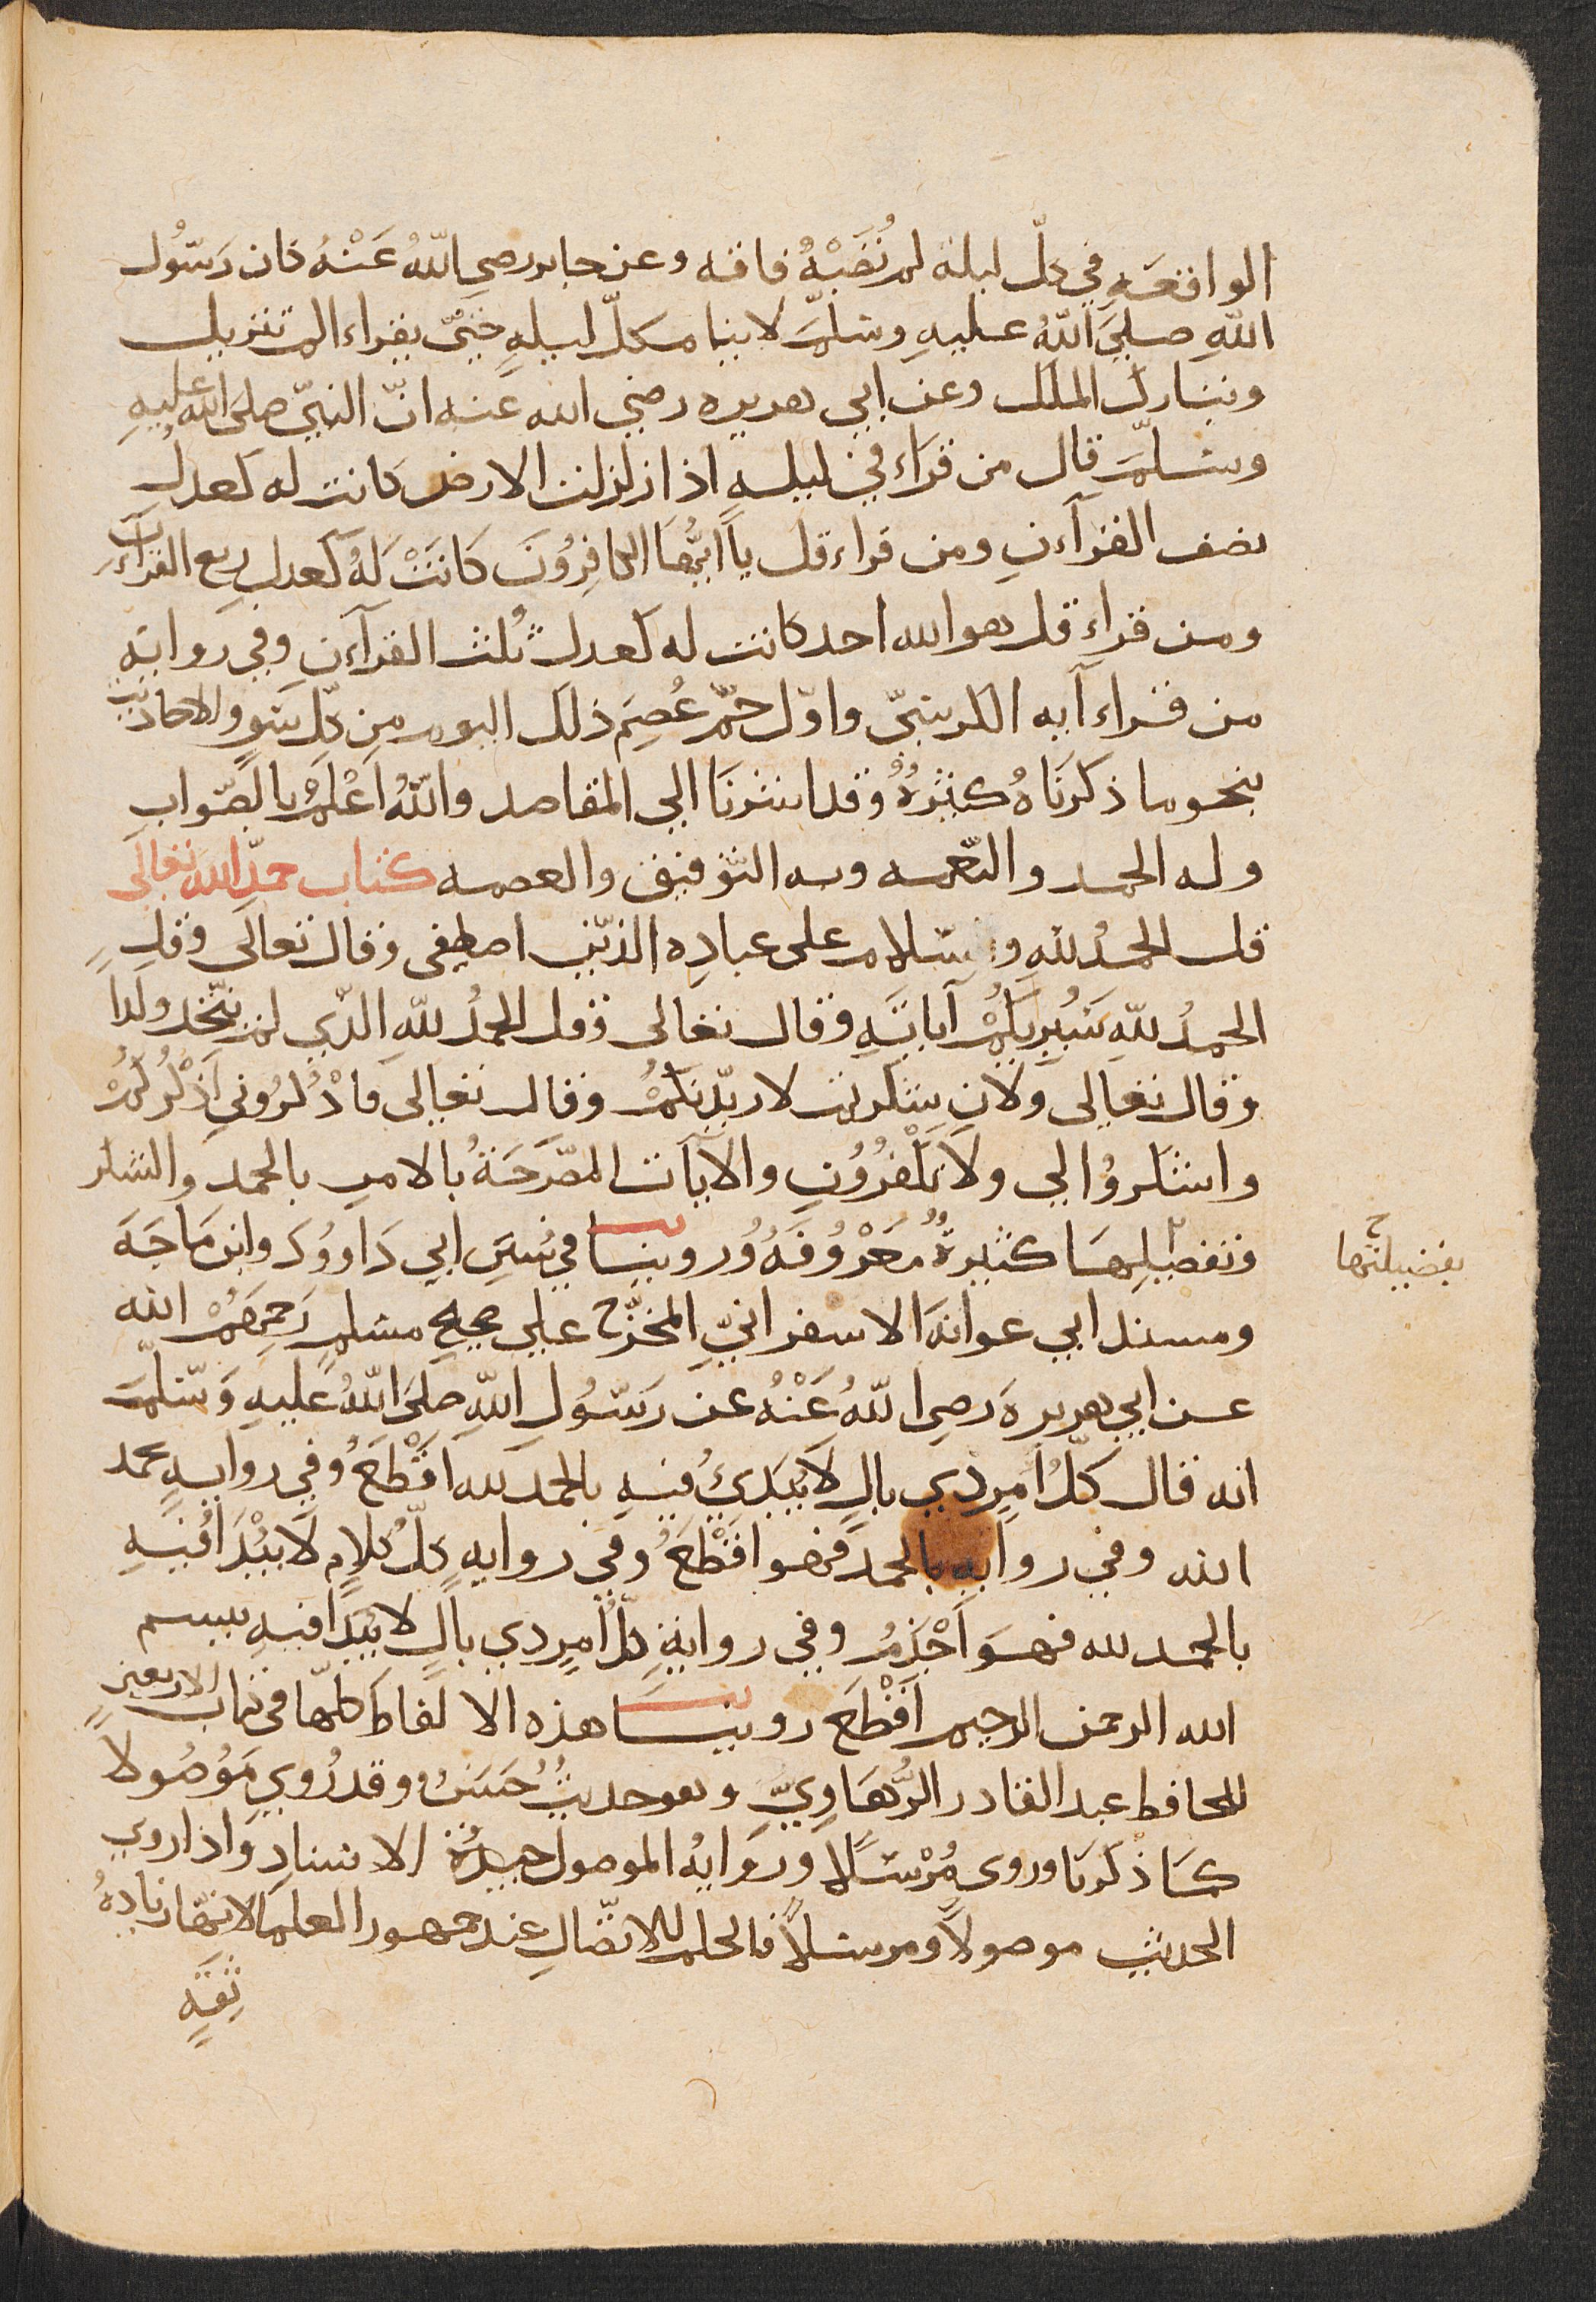 الواقعَةِ في كلّ ليلة لم تُصَبْهُ فاقه وعن جابر رضي اللهُ عَنْهُ كان رَسُول
اللهِ صلىَ اللهُ عليهِ وسَلمَّ لا ينام كلّ ليلهٍ حَتىّ يقراء الم تنزيل
وتبارك الملك وعن ابي هريره رضي الله عنه انّ النبيّ صلى الله عليهِ
وسلمَّ قال من قراء في ليلهٍ اذا زلزلت الارض كانت له كعدل
نصف القرآءن ومن قراء قل يا ايُّهاَ الكافِرُونَ كانَتْ لهُ كعدل ربع القرآءن
ومن قراء قل هو الله احد كانت له كعدل ثلث القرآءن وفي روايةٍ
من قراء آيه الكرسِيّ واوّل حمّ عُصِمَ ذلك اليوم مِن كلّ سَوٍ والاحاديث
بنحو ما ذكرنَاهُ كثيْرةُ وقد اشرنَا الي المقاصد واللهُ اَعْلَمُ بالصّواب
وله الحمد والنعّمه وبه التوّفيق والعصمه كتاب حمدِ اللهَ تعالَى
قل الحمدُ للهِ وسَلام على عبادِهِ الذيّن اصطفى وقال تعالَى وقلِ
الحمدُ للهِ سَيُرِيكُمْ آياتِهِ وقال تعالى وقل الحمدُ للهِ الذّي لم يتّخذ ولداً
وقال تعالى ولانِ شكرتم لازيدّنكمُ وقال تعالى فاذْكُرُوني اَذْكُرُكُمْ
واشكروُا لي ولاَ تكفُرُونِ والآياَت المصّرَحَةُ بالامرِ بالحمد والشكر
وتفضيلِهَا كثيرةُ مُعَرْوُفَهُ وُروينَا في سُننَِ ابي دَاووُدَ وابن مَاجَهَ
بفضيلتَهما
ومسند ابي عوانهَ الاسفرانيّ المخرّج علي صحيح مسلمٍ رَحِمَهُمْ الله
عن ابي هريرهَ رضي اللهُ عَنْهُ عن رَسُولِ اللهِ صلىَ اللهُ عليهِ وَسَلمَّ
انه قال كلّ اَمرٍ ذي بالٍ لاَ يُبدَيُ فيهِ بالحمد لله اَقْطَعَُ وفي روايهٍ بحمد
الله وفي روايهٍ بالحمد فهو اقَطْعَُ وفي روايهٍ كلّ كلاَمٍ لاَ يبُدَْا فيهِ
بالحمد لله فهوَ اَجْذمَُ وفي روايةٍ كلّ اَمرٍ ذي بالٍ لا يُبدَا فيهِ ببسم
الله الرحمن الرحيم اَقْطَعَُ روينا هذه الالفاظ كلهّا في كتاب الاربعينٍ
للحافظ عبد القادر الرُّهَاوِيَّ وهو حديثُ حَسَنُ وقد رُوي مَوُصُولاً
كما ذكرنا وروى مُرْسَلاً ورَوايهُ الموصول جيدةُ الاسنادِ واذا روي
الحديث موصولاً ومرسلاً فالحكم للاتصّالِ عند جمهور العلمَا لانهّا زيادهُ
ثِقَةٍ